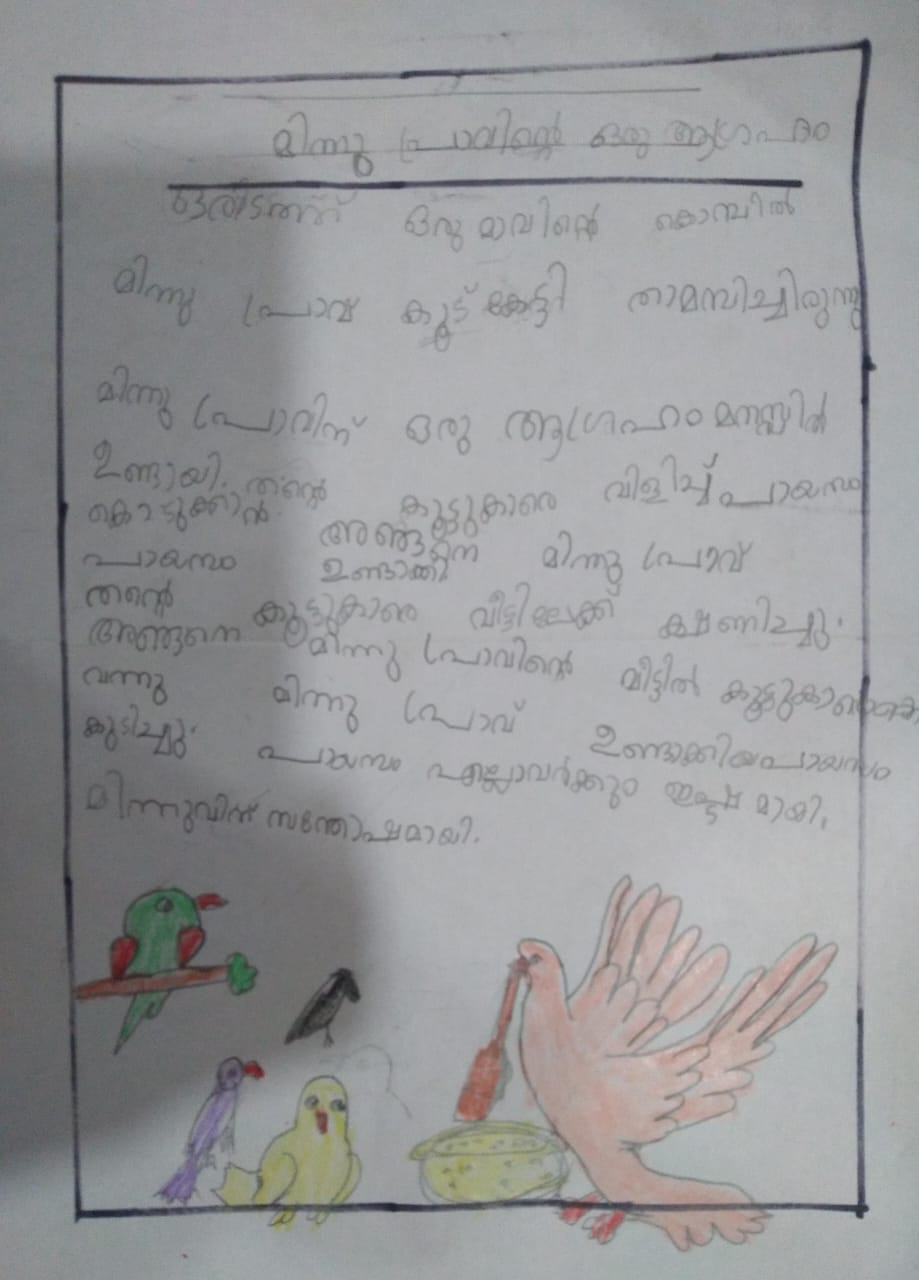 മിന്നു പ്രാവിന്റെ ഒരു ആഗ്രഹം
ഒരിടത്ത് ഒരു മാവിന്റെ കൊമ്പിൽ
മിന്നു പ്രാവ് കൂട് കേട്ടി താമസിച്ചിരുന്നു
മിന്നു പ്രാവിന് ഒരു ആഗ്രഹം മനസ്സിൽ
ഉണ്ടായി. തന്റെ കൂട്ടുകാരെ വിളിച്ച് പായസം
കൊടുക്കാൻ. അങ്ങനെ മിന്നു പ്രാവ്
പായസം ഉണ്ടാക്കി
തന്റെ കൂട്ടുകാരെ വീട്ടിലേക്ക് ക്ഷണിച്ചു.
അങ്ങനെ മിന്നു പ്രാവിന്റെ വീട്ടിൽ
വന്നു മിന്നു പ്രാവ് ഉണ്ടാക്കിയ പായസം
കുടിച്ചു. പായസം എല്ലാവർക്കും ഇഷ്ട മായി.
മിന്നുവിന് സന്തോഷമായി.